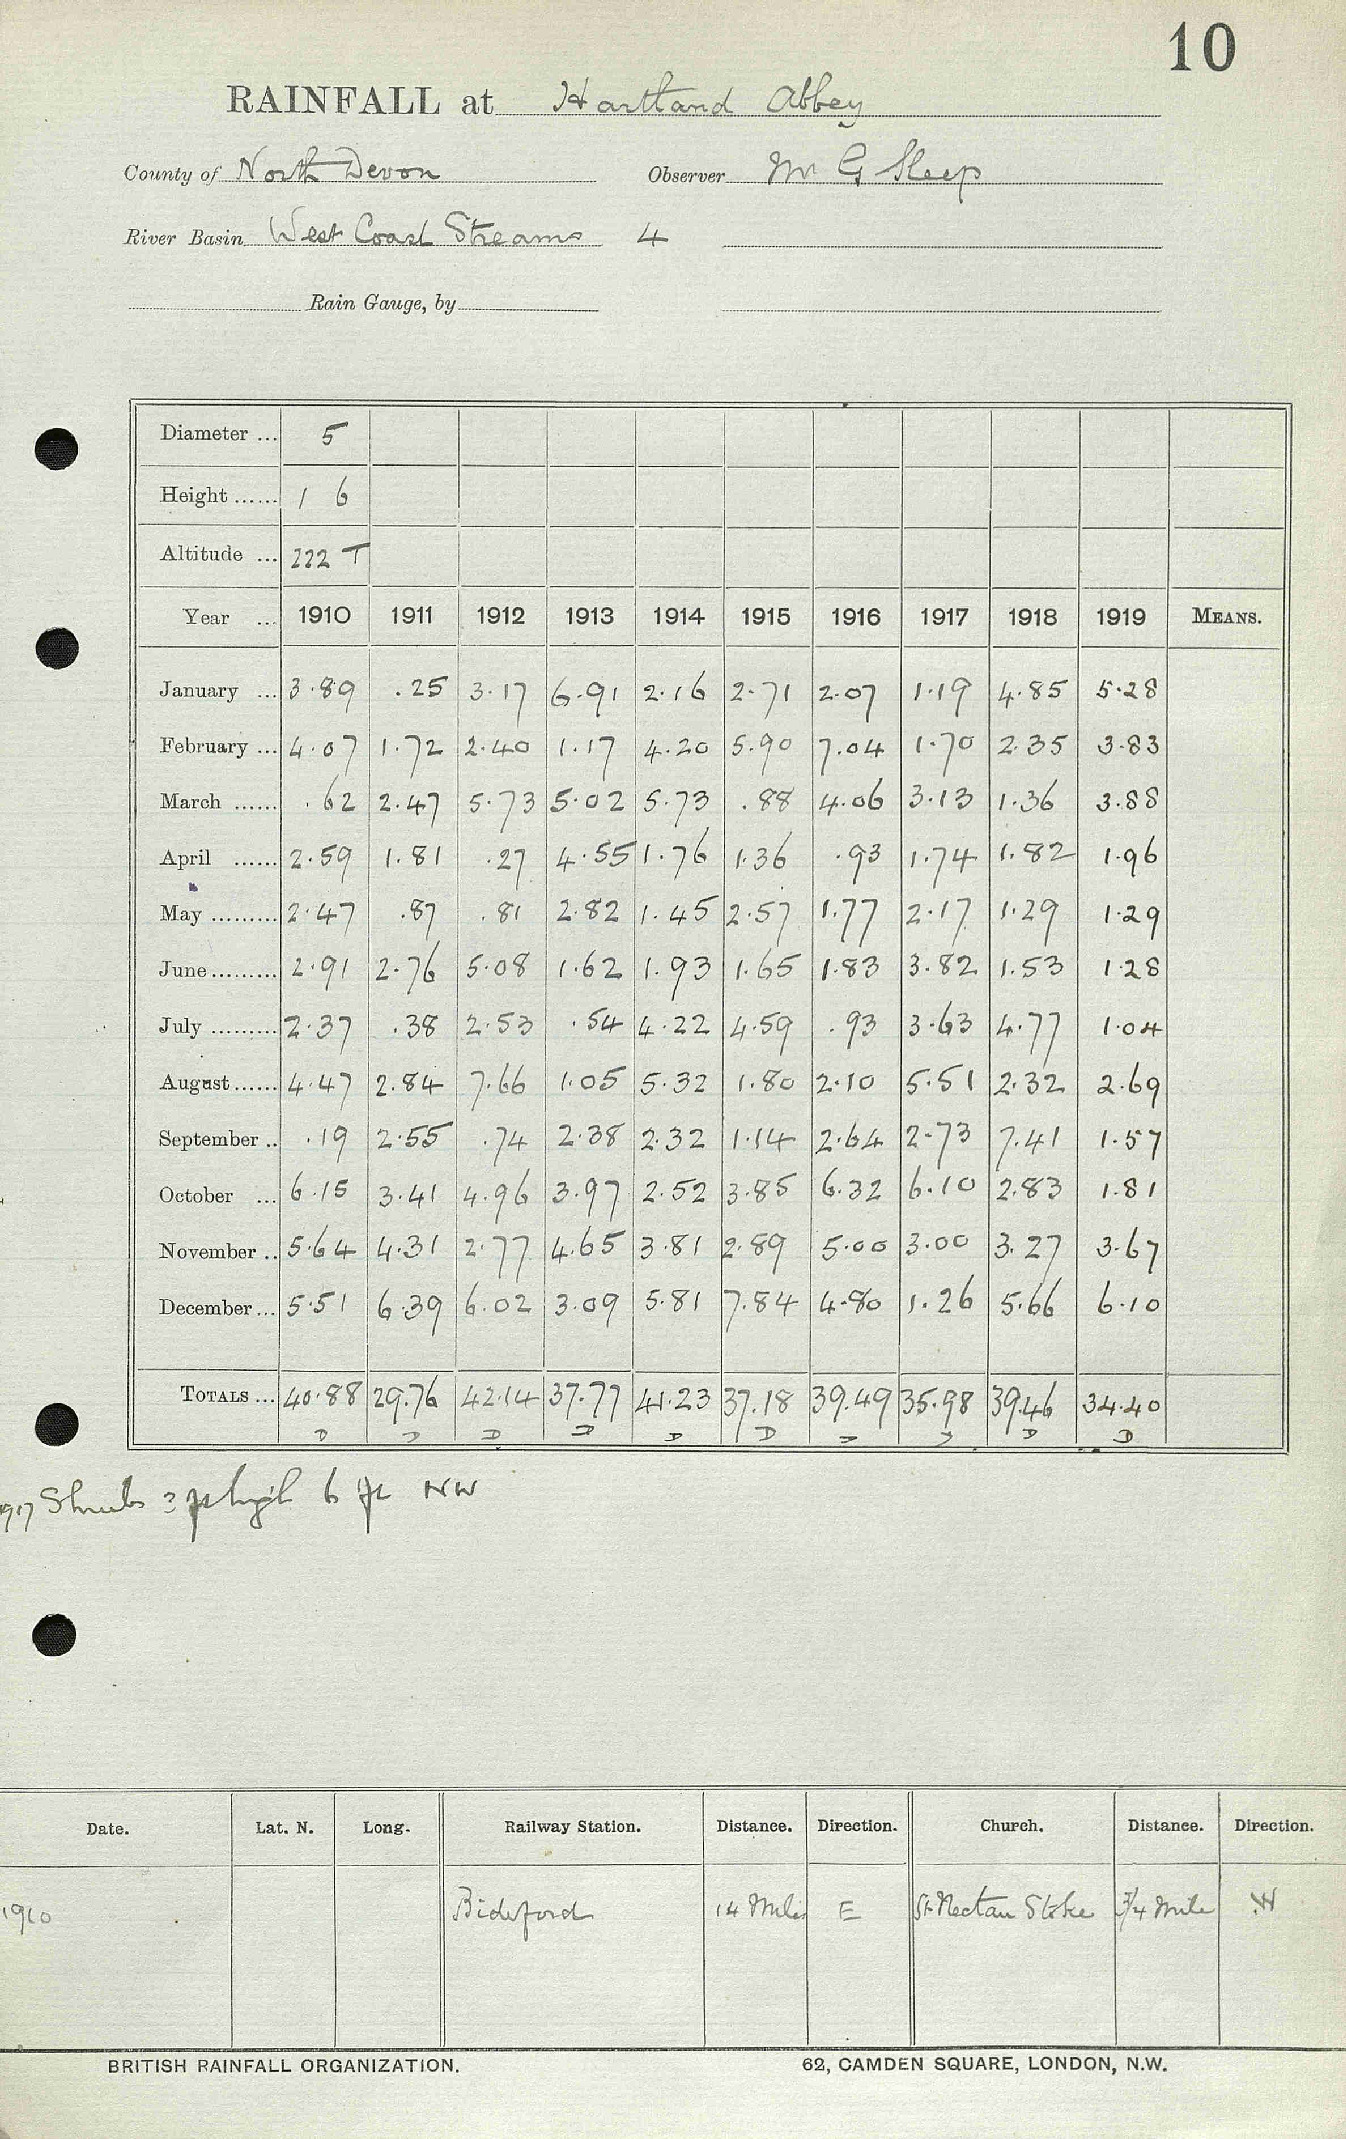 10
RAINFALL at Hartland Abbey
County of North Devon Observer Mr G Sleep
River Basin West Coast Streams 4
Rain Gauge, by
Diameter ... 5
Height ...... 1 6
Altitude ... 222 T
Year ... 1910 1911 1912 1913 1914 1915 1916 1917 1918 1919 MEANS.
January ... 3.89 .25 3.17 6.91 2.16 2.71 2.07 1.19 4.85 5.28
February ... 4.07 1.72 2.40 1.17 4.20 5.90 7.04 1.70 2.35 3.83
March ...... .62 2.47 5.73 5.02 5.73 .88 4.06 3.13 1.36 3.88
April ...... 2.59 1.81 .27 4.55 1.76 1.36 .93 1.74 1.82 1.96
May ......... 2.47 .87 .81 2.82 1.45 2.57 1.77 2.17 1.29 1.29
June ......... 2.91 2.76 5.08 1.62 1.93 1.65 1.83 3.82 1.53 1.28
July ......... 2.37 .38 2.53 .54 4.22 4.59 .93 3.63 4.77 1.04
August ...... 4.47 2.84 7.66 1.05 5.32 1.80 2.10 5.51 2.32 2.69
September .. .19 2.55 .74 2.38 2.32 1.14 2.64 2.73 7.41 1.57
October ... 6.15 3.41 4.96 3.97 2.52 3.85 6.32 6.10 2.83 1.81
November .. 5.64 4.31 2.77 4.65 3.81 2.89 5.00 3.00 3.27 3.67
December ... 5.51 6.39 6.02 3.09 5.81 7.84 4.80 1.26 5.66 6.10
TOTALS ... 40.88 29.76 42.14 37.77 41.23 37.18 39.49 35.98 39.46 34.40
D D D D D D D D D D
1917 Shrubs 3 ft high 6 ft NW
Date. Lat. N. Long. Railway Station. Distance. Direction. Church. Distance. Direction.
1910 Bideford 14 Miles E St Nectan Stoke 3/4 Mile W
BRITISH RAINFALL ORGANIZATION. 62, CAMDEN SQUARE, LONDON, N.W.